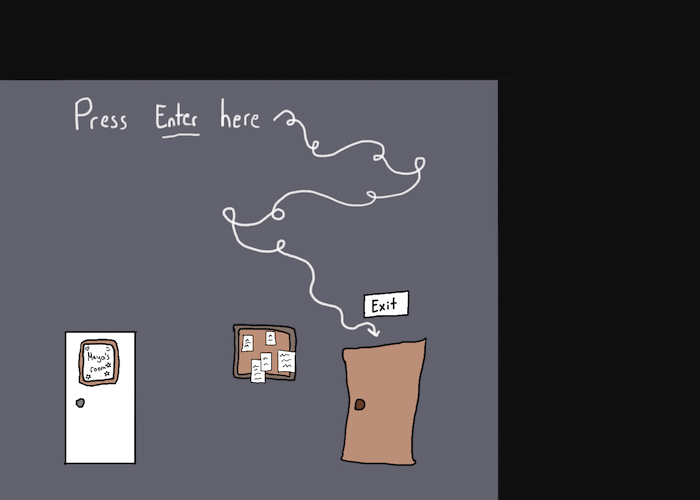 Press Enter here
Exit
Maya's
room